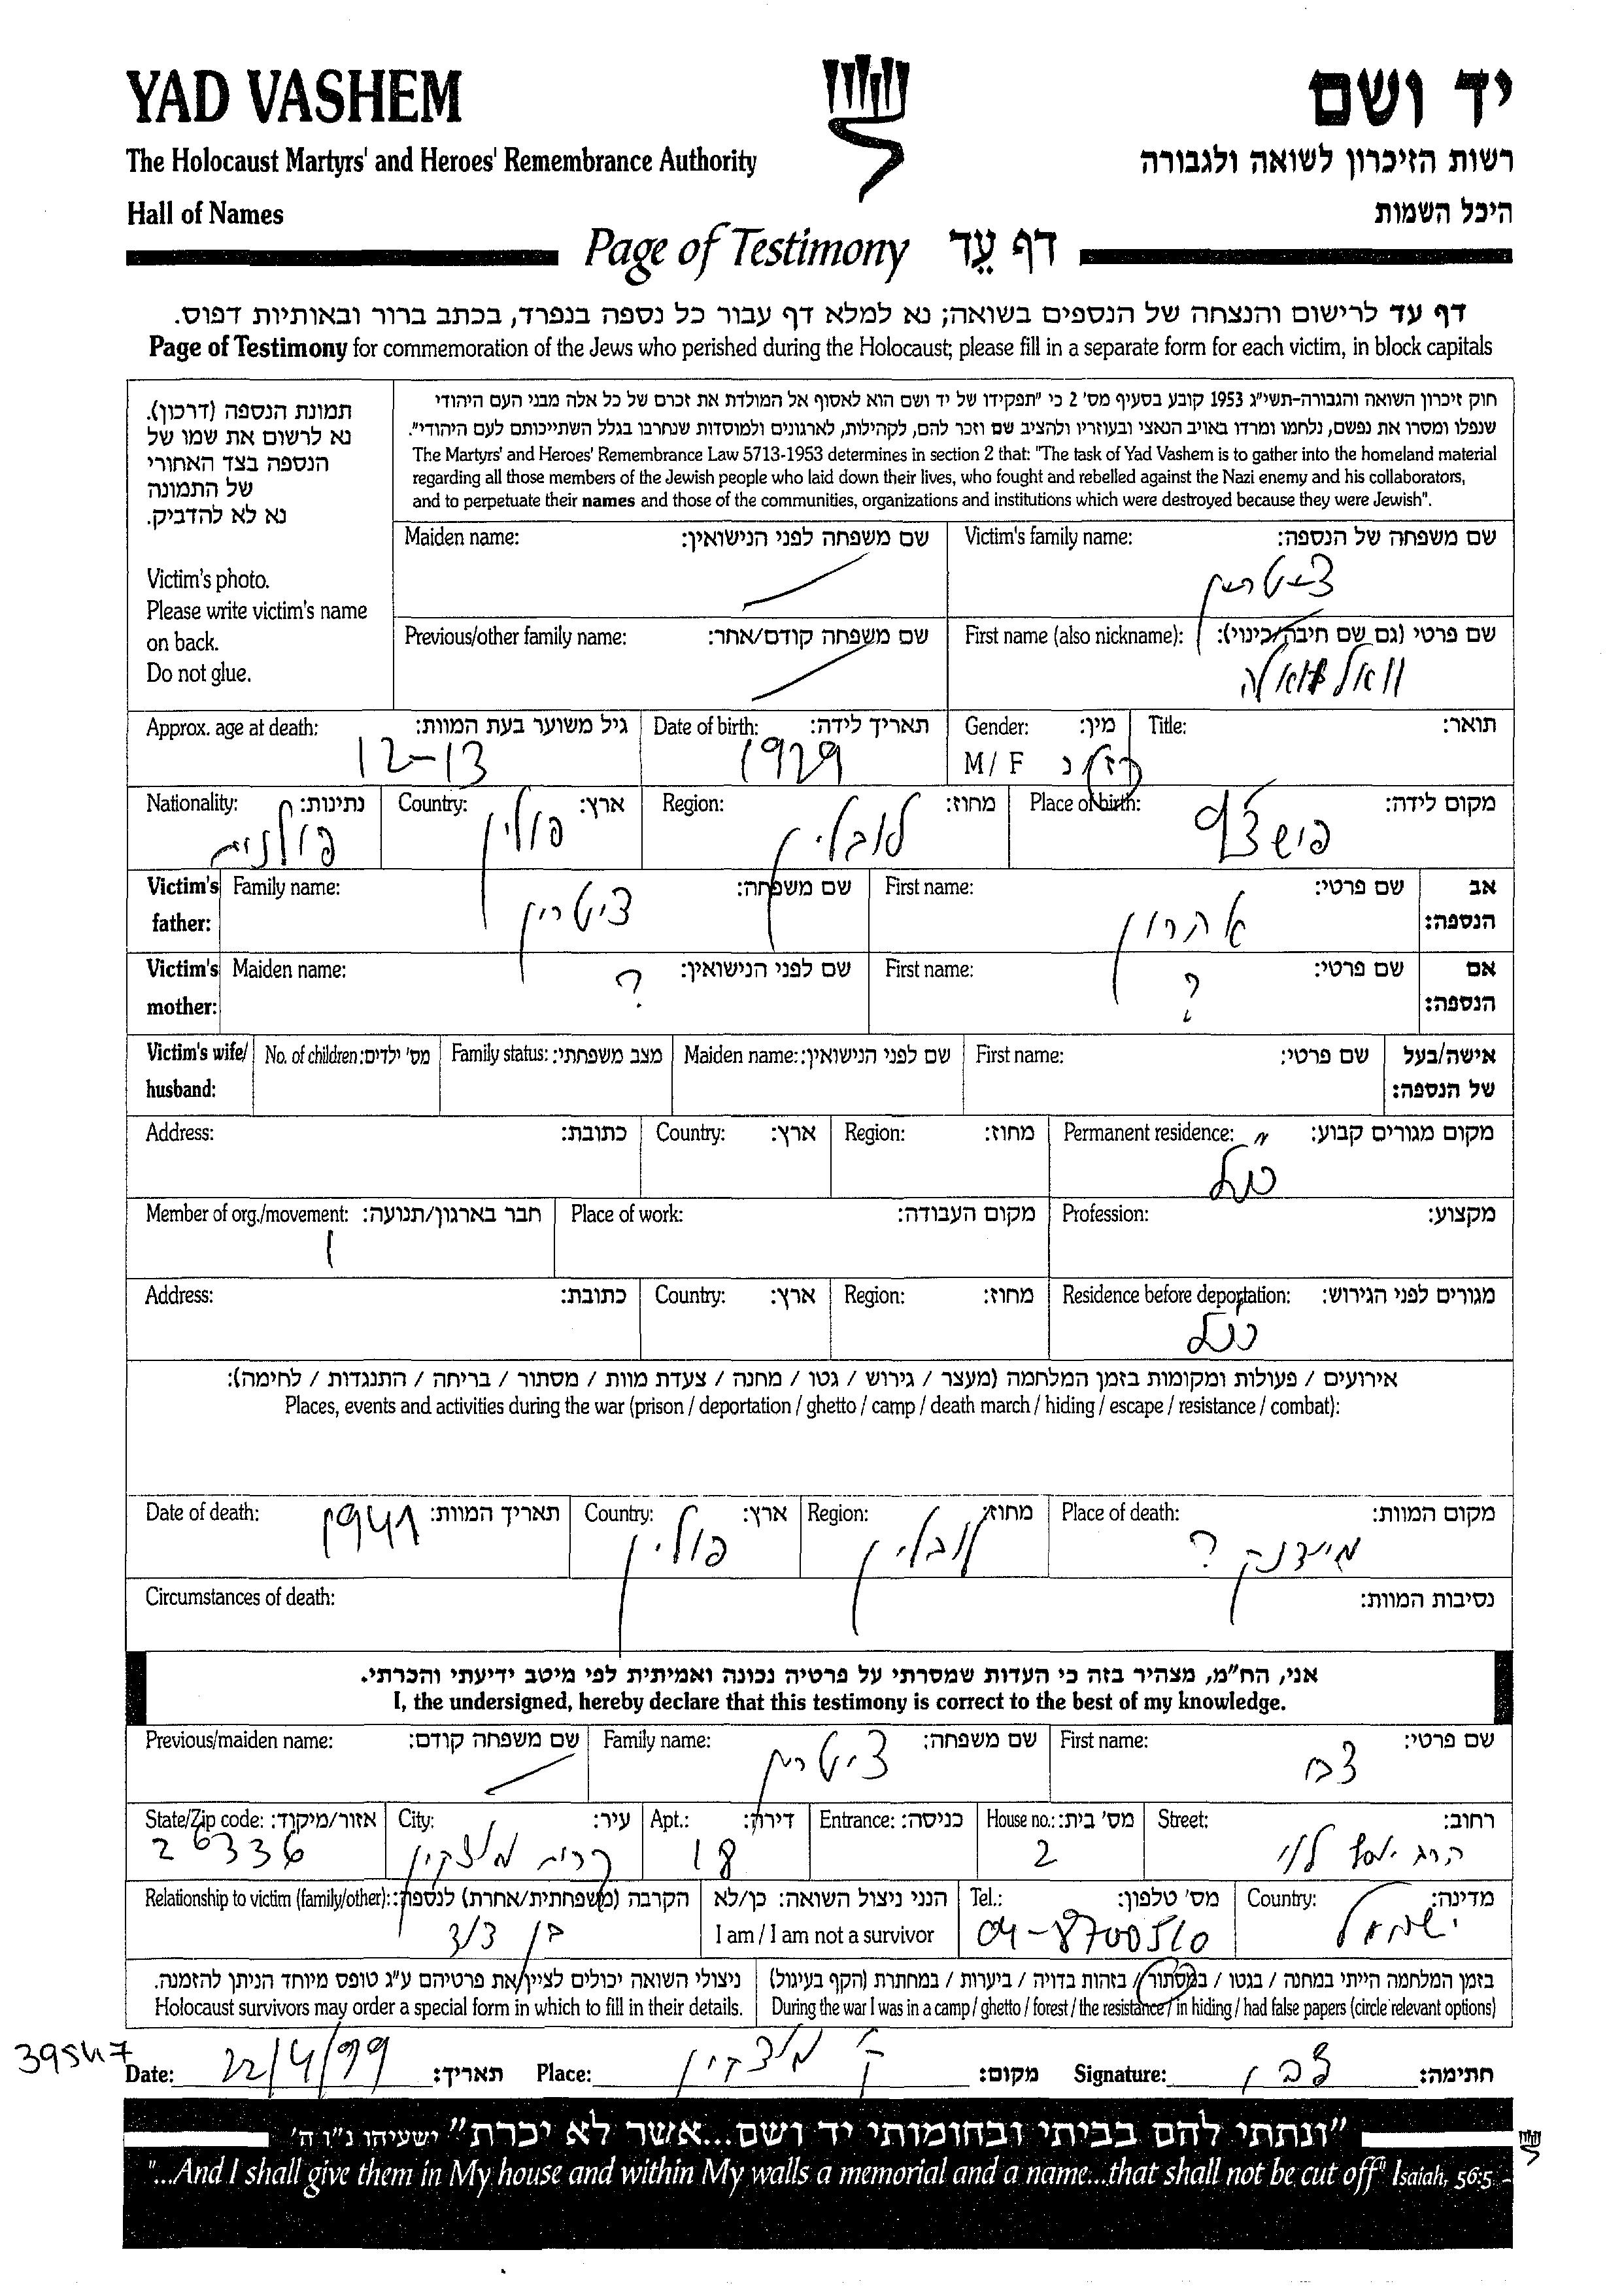 YAD VASHEM
יד ושם
The Holocaust Martyrs' and Heroes' Remembrance Authority
רשות הזיכרון לשואה ולגבורה
Hall of Names
היכל השמות
Page of Testimony דף עֵד
דף עד לרישום והנצחה של הנספים בשואה; נא למלא דף עבור כל נספה בנפרד, בכתב ברור ובאותיות דפוס.
Page of Testimony for commemoration of the Jews who perished during the Holocaust; please fill in a separate form for each victim, in block capitals
תמונת הנספה (דרכון).
נא לרשום את שמו של
הנספה בצד האחורי
של התמונה
נא לא להדביק.
Victim's photo.
Please write victim's name
on back.
Do not glue.
חוק זיכרון השואה והגבורה-תשי"ג 1953 קובע בסעיף מס' 2 כי "תפקידו של יד ושם הוא לאסוף אל המולדת את זכרם של כל אלה מבני העם היהודי
שנפלו ומסרו את נפשם, נלחמו ומרדו באויב הנאצי ובעוזריו ולהציב שם וזכר להם, לקהילות, לארגונים ולמוסדות שנחרבו בגלל השתייכותם לעם היהודי".
The Martyrs' and Heroes' Remembrance Law 5713-1953 determines in section 2 that: "The task of Yad Vashem is to gather into the homeland material
regarding all those members of the Jewish people who laid down their lives, who fought and rebelled against the Nazi enemy and his collaborators,
and to perpetuate their names and those of the communities, organizations and institutions which were destroyed because they were Jewish".
Maiden name: שם משפחה לפני הנישואין: Victim's family name: שם משפחה של הנספה:
ציטרין
Previous/other family name: שם משפחה קודם/אחר: First name (also nickname): שם פרטי (גם שם חיבה/כינוי):
Approx. age at death: גיל משוער בעת המוות: Date of birth: תאריך לידה: Gender: מין: Title: תואר:
12-13 1929 M / F ז/נ
Nationality: נתינות: Country: ארץ: Region: מחוז: Place of birth: מקום לידה:
פולנית פולין לובלין
Victim's father: Family name: שם משפחה: First name: שם פרטי: אב הנספה:
ציטרין אהרון
Victim's mother: Maiden name: שם לפני הנישואין: First name: שם פרטי: אם הנספה:
? ?
Victim's wife/ husband: No. of children: מס' ילדים: Family status: מצב משפחתי: Maiden name: שם לפני הנישואין: First name: שם פרטי: אישה/בעל של הנספה:
Address: כתובת: Country: ארץ: Region: מחוז: Permanent residence: מקום מגורים קבוע:
כנ"ל
Member of org./movement: חבר בארגון/תנועה: Place of work: מקום העבודה: Profession: מקצוע:
Address: כתובת: Country: ארץ: Region: מחוז: Residence before deportation: מגורים לפני הגירוש:
כנ"ל
אירועים / פעולות ומקומות בזמן המלחמה (מעצר / גירוש / גטו / מחנה / צעדת מוות / מסתור / בריחה / התנגדות / לחימה):
Places, events and activities during the war (prison / deportation / ghetto / camp / death march / hiding / escape / resistance / combat):
Date of death: תאריך המוות: Country: ארץ: Region: מחוז: Place of death: מקום המוות:
1941 פולין לובלין מיידנק ?
Circumstances of death: נסיבות המוות:
אני, הח"מ, מצהיר בזה כי העדות שמסרתי על פרטיה נכונה ואמיתית לפי מיטב ידיעתי והכרתי.
I, the undersigned, hereby declare that this testimony is correct to the best of my knowledge.
Previous/maiden name: שם משפחה קודם: Family name: שם משפחה: First name: שם פרטי:
ציטרין צבי
State/Zip code: אזור/מיקוד: City: עיר: Apt.: דירה: Entrance: כניסה: House no.: מס' בית: Street: רחוב:
26336 קרית מוצקין 18 2
Relationship to victim (family/other): הקרבה (משפחתית/אחרת) לנספה: הנני ניצול השואה: כן/לא Tel.: מס' טלפון: Country: מדינה:
בן דוד I am / I am not a survivor 04-8700510 ישראל
ניצולי השואה יכולים לציין את פרטיהם ע"ג טופס מיוחד הניתן להזמנה. בזמן המלחמה הייתי במחנה / בגטו / במסתור / בזהות בדויה / ביערות / במחתרת (הקף בעיגול)
Holocaust survivors may order a special form in which to fill in their details. During the war I was in a camp / ghetto / forest / the resistance / in hiding / had false papers (circle relevant options)
39547
Date: 22/4/99 תאריך: Place: ק. מוצקין מקום: Signature: חתימה:
"ונתתי להם בביתי ובחומותי יד ושם...אשר לא יכרת" ישעיהו נ"ו ה'
"...And I shall give them in My house and within My walls a memorial and a name...that shall not be cut off" Isaiah, 56:5